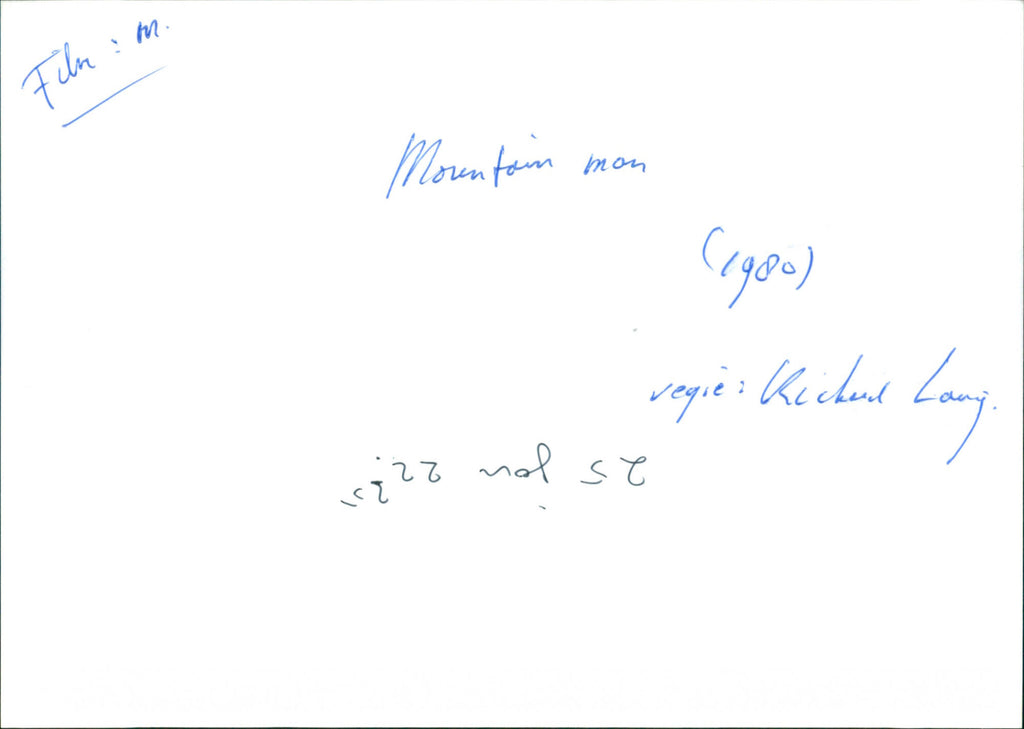 Film : M.
Mountain man
(1980)
regie: Richard Lang.
25 jan 22.25